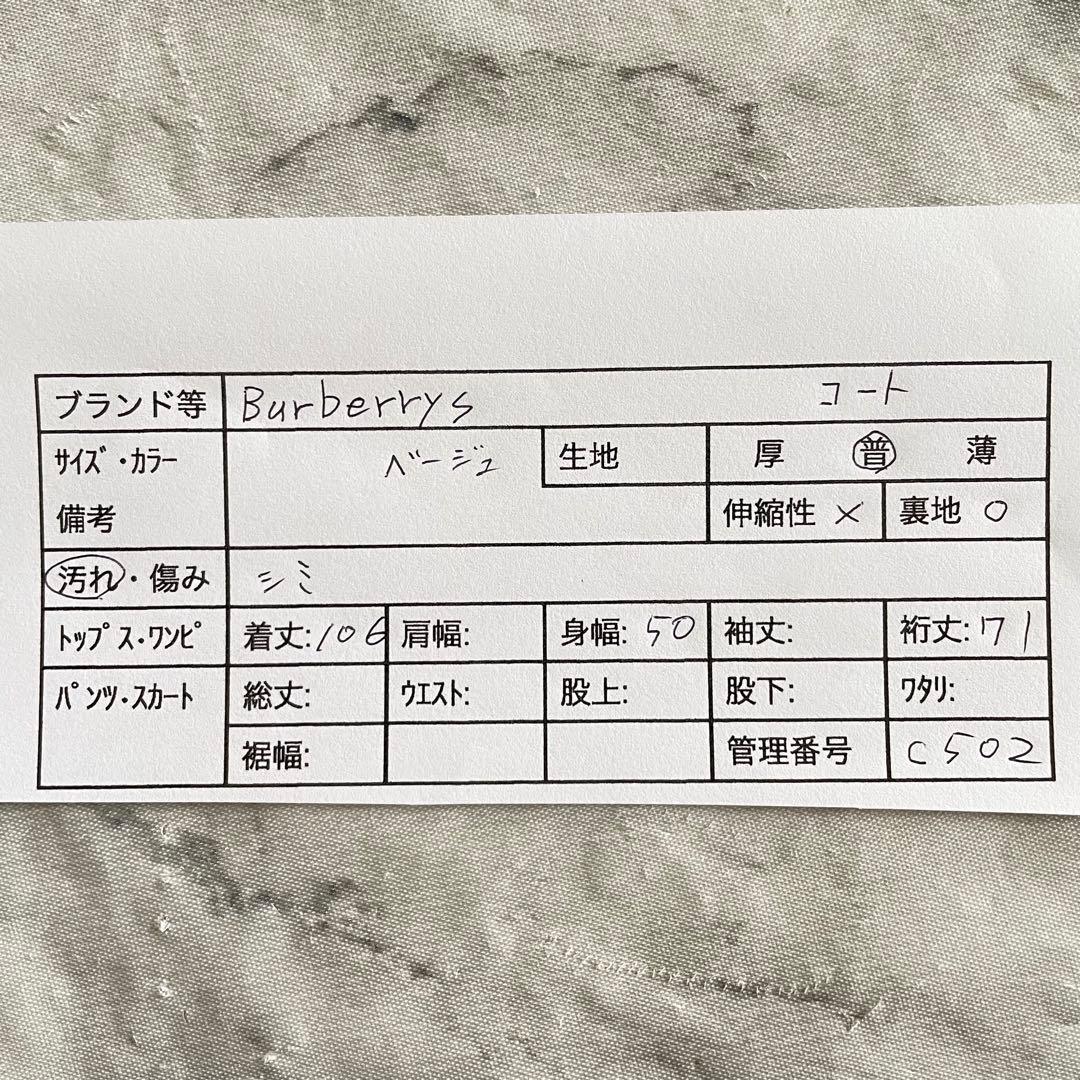 ブランド等 Burberrys コート
サイズ・カラー ベージュ 生地 厚 普 薄
備考 伸縮性 × 裏地 ○
汚れ・傷み シミ
トップス・ワンピ 着丈:106 肩幅: 身幅: 50 袖丈: 裄丈:71
パンツ・スカート 総丈: ウエスト: 股上: 股下: ワタリ:
裾幅: 管理番号 C502